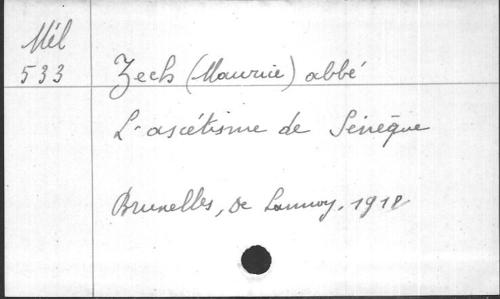 Mél
533
Zech (Maurice) abbé
L'ascétisme de Sénèque
Bruxelles, De Lannoy, 1918